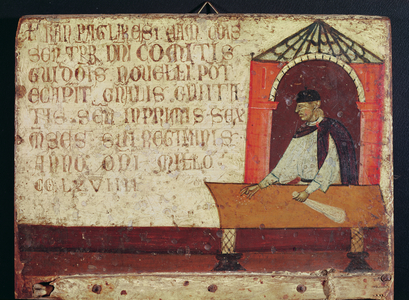 RAN PAGLIARESI CAM. COIS
SEN TPR. DNI COMITIS
GUIDOIS NOVELLI POT
ECAPIT. GNALIS CIVITA
TIS. SEN. IN PRIMIS SEX
MSES. SUI REGIMINIS
ANNO. DNI MILLO
CC. LXVIIII